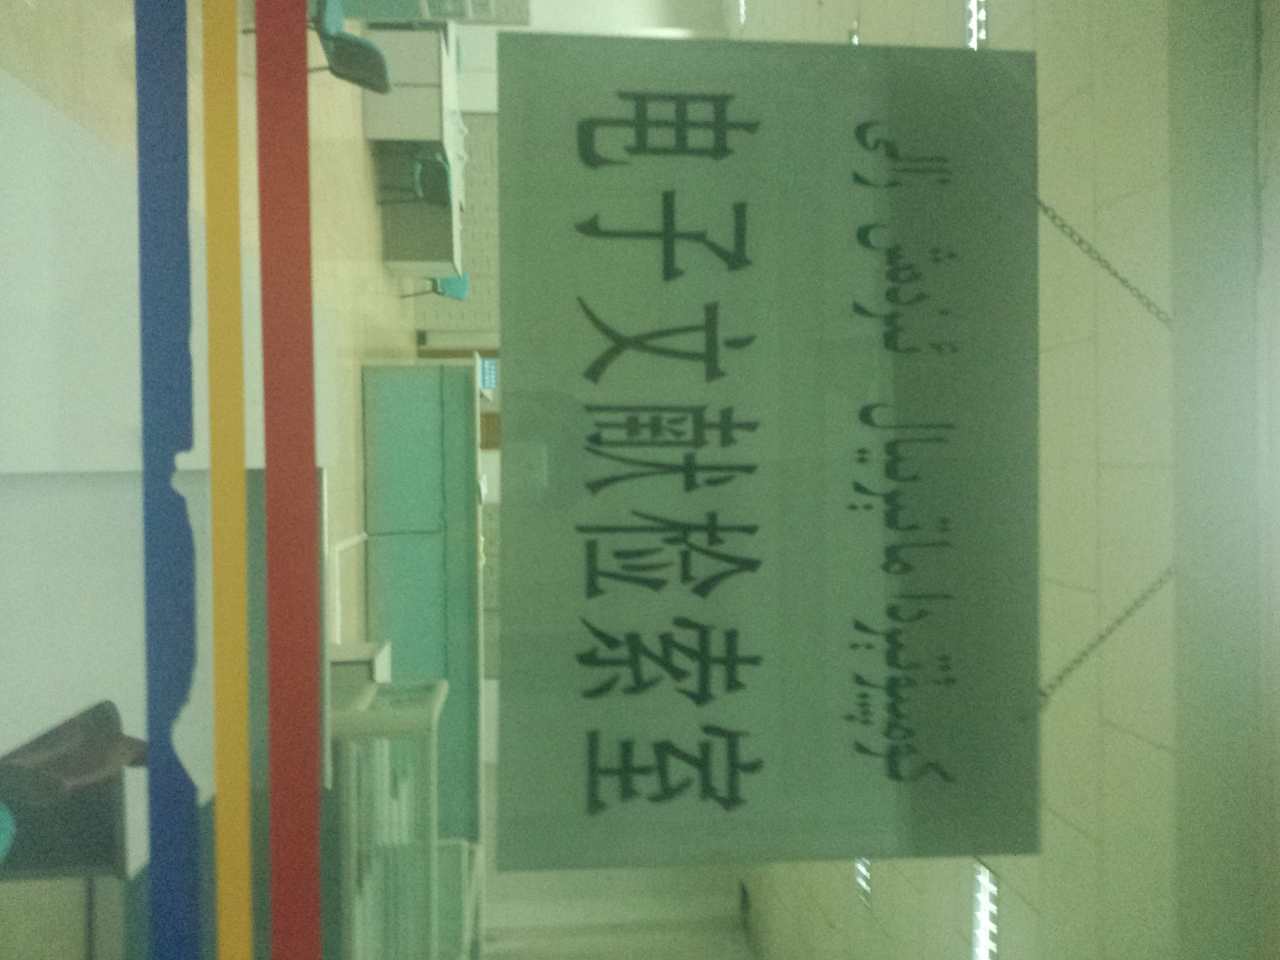 كومپيۇتېردا ماتېرىيال ئىزدەش زالى
电子文献检索室